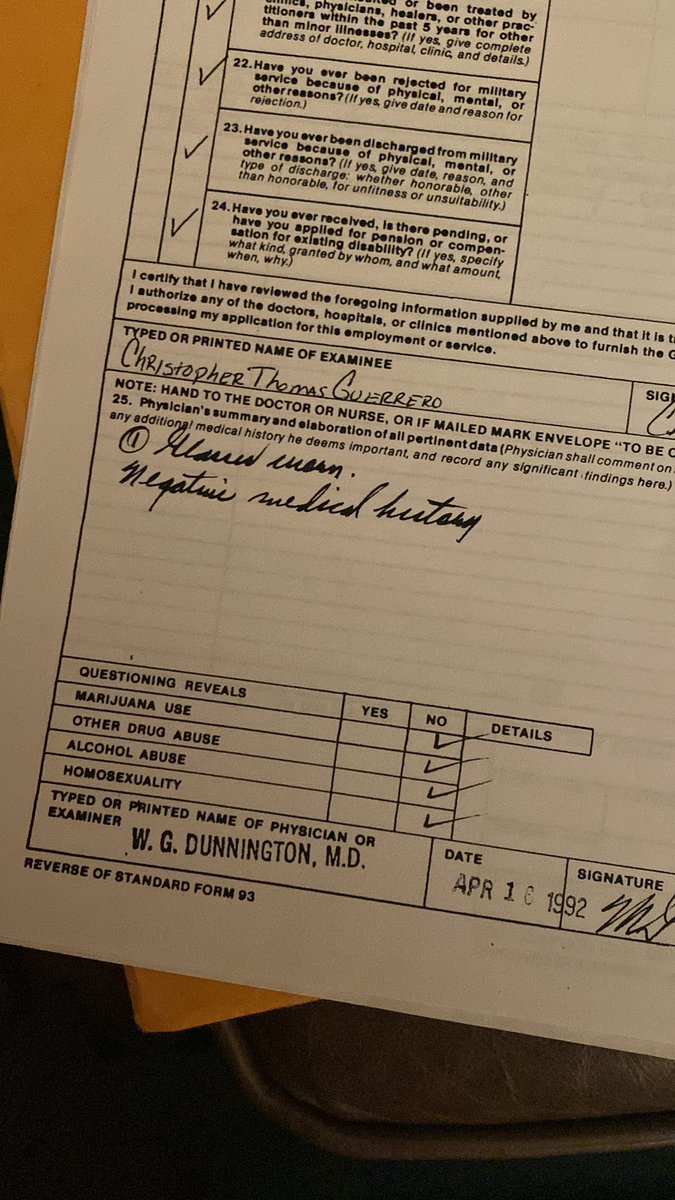 or been treated by
clinics, physicians, healers, or other prac-
titioners within the past 5 years for other
than minor illnesses? (If yes, give complete
address of doctor, hospital, clinic, and details.)
22. Have you ever been rejected for military
service because of physical, mental, or
other reasons? (If yes, give date and reason for
rejection.)
23. Have you ever been discharged from military
service because of physical, mental, or
other reasons? (If yes, give date, reason, and
type of discharge: whether honorable, other
than honorable, for unfitness or unsuitability.)
24. Have you ever received, is there pending, or
have you applied for pension or compen-
sation for existing disability? (If yes, specify
what kind, granted by whom, and what amount,
when, why.)
I certify that I have reviewed the foregoing information supplied by me and that it is
I authorize any of the doctors, hospitals, or clinics mentioned above to furnish the G
processing my application for this employment or service.
TYPED OR PRINTED NAME OF EXAMINEE
CHRISTOPHER THOMAS GUERRERO
SIG
NOTE: HAND TO THE DOCTOR OR NURSE, OR IF MAILED MARK ENVELOPE "TO BE
25. Physician's summary and elaboration of all pertinent data (Physician shall comment on
any additional medical history he deems important, and record any significant findings here.)
① worn.
Negative medical history
QUESTIONING REVEALS
YES NO DETAILS
MARIJUANA USE
OTHER DRUG ABUSE
ALCOHOL ABUSE
HOMOSEXUALITY
TYPED OR PRINTED NAME OF PHYSICIAN OR
EXAMINER
W. G. DUNNINGTON, M.D.
DATE
APR 1 1992
SIGNATURE
REVERSE OF STANDARD FORM 93